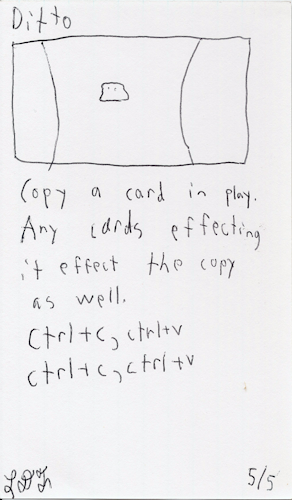 Ditto
Copy a card in play.
Any cards effecting
it effect the copy
as well.
Ctrl+c, ctrl+v
ctrl+c, ctrl+v
5/5